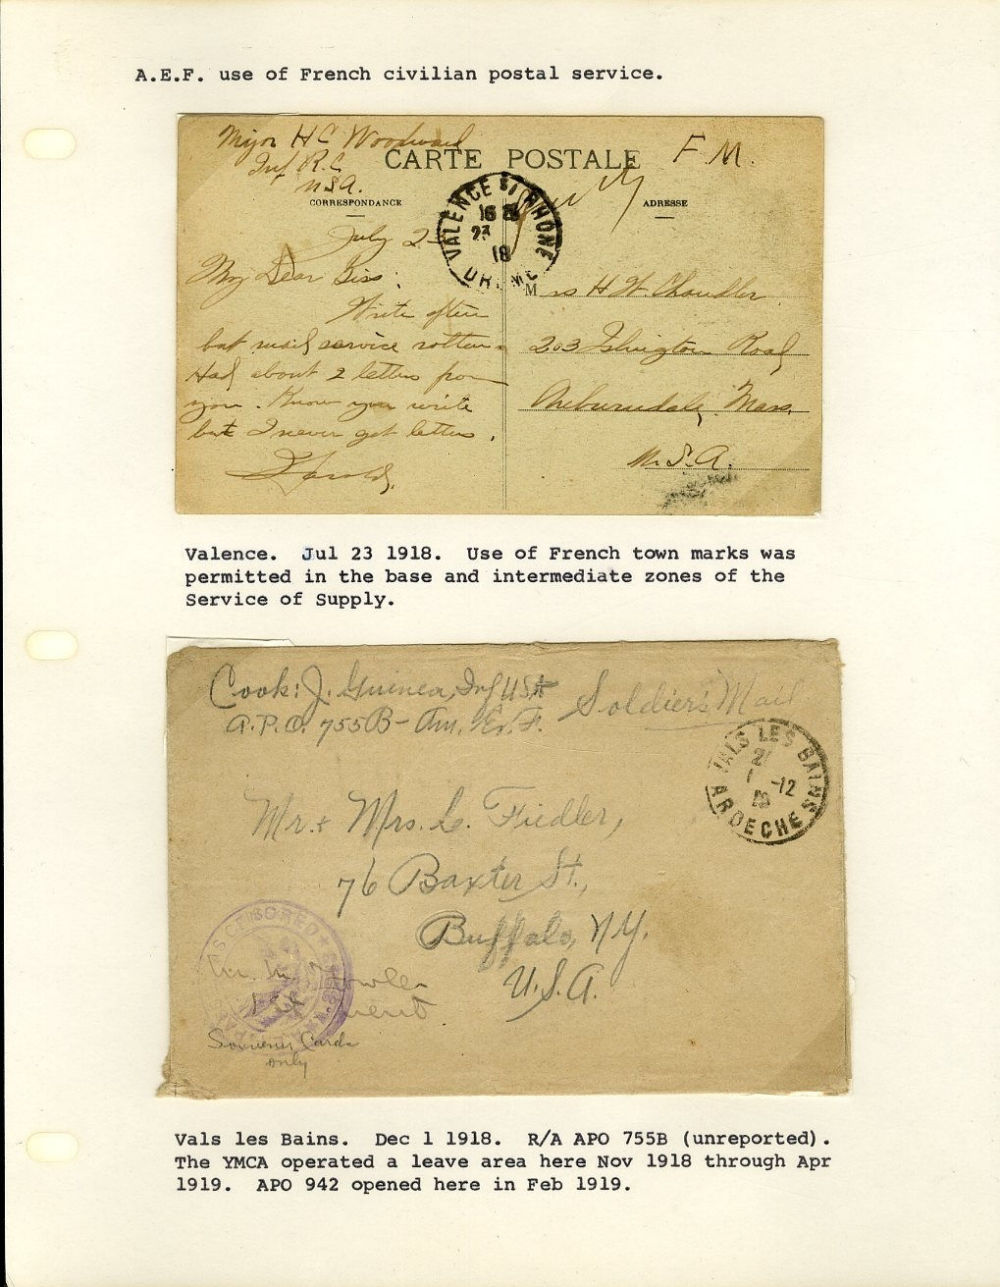 A.E.F. use of French civilian postal service.
Major H C Woodward
Inf R.C.
U S A.
CARTE POSTALE
F. M.
CORRESPONDANCE
ADRESSE
VALENCE S/ RHONE
23
18
July 2
My Dear Siss:
Write often
but mail service rotten
Had about 2 letters from
you. Know you write
but I never get letters.
Harold.
Mrs H W. Chandler
203 Islington Road
Auburndale, Mass.
U. S. A.
Valence. Jul 23 1918. Use of French town marks was
permitted in the base and intermediate zones of the
Service of Supply.
Cook: J. Guinea, Inf USA
A.P.O. 755B - Am. Ex. F.
Soldier's Mail
VALS LES BAINS
1 -12
ARDECHE
Mr. + Mrs. L. Fiedler,
76 Baxter St.,
Buffalo, N.Y.
U.S.A.
CENSORED
Souvenir Cards
only
Vals les Bains. Dec 1 1918. R/A APO 755B (unreported).
The YMCA operated a leave area here Nov 1918 through Apr
1919. APO 942 opened here in Feb 1919.